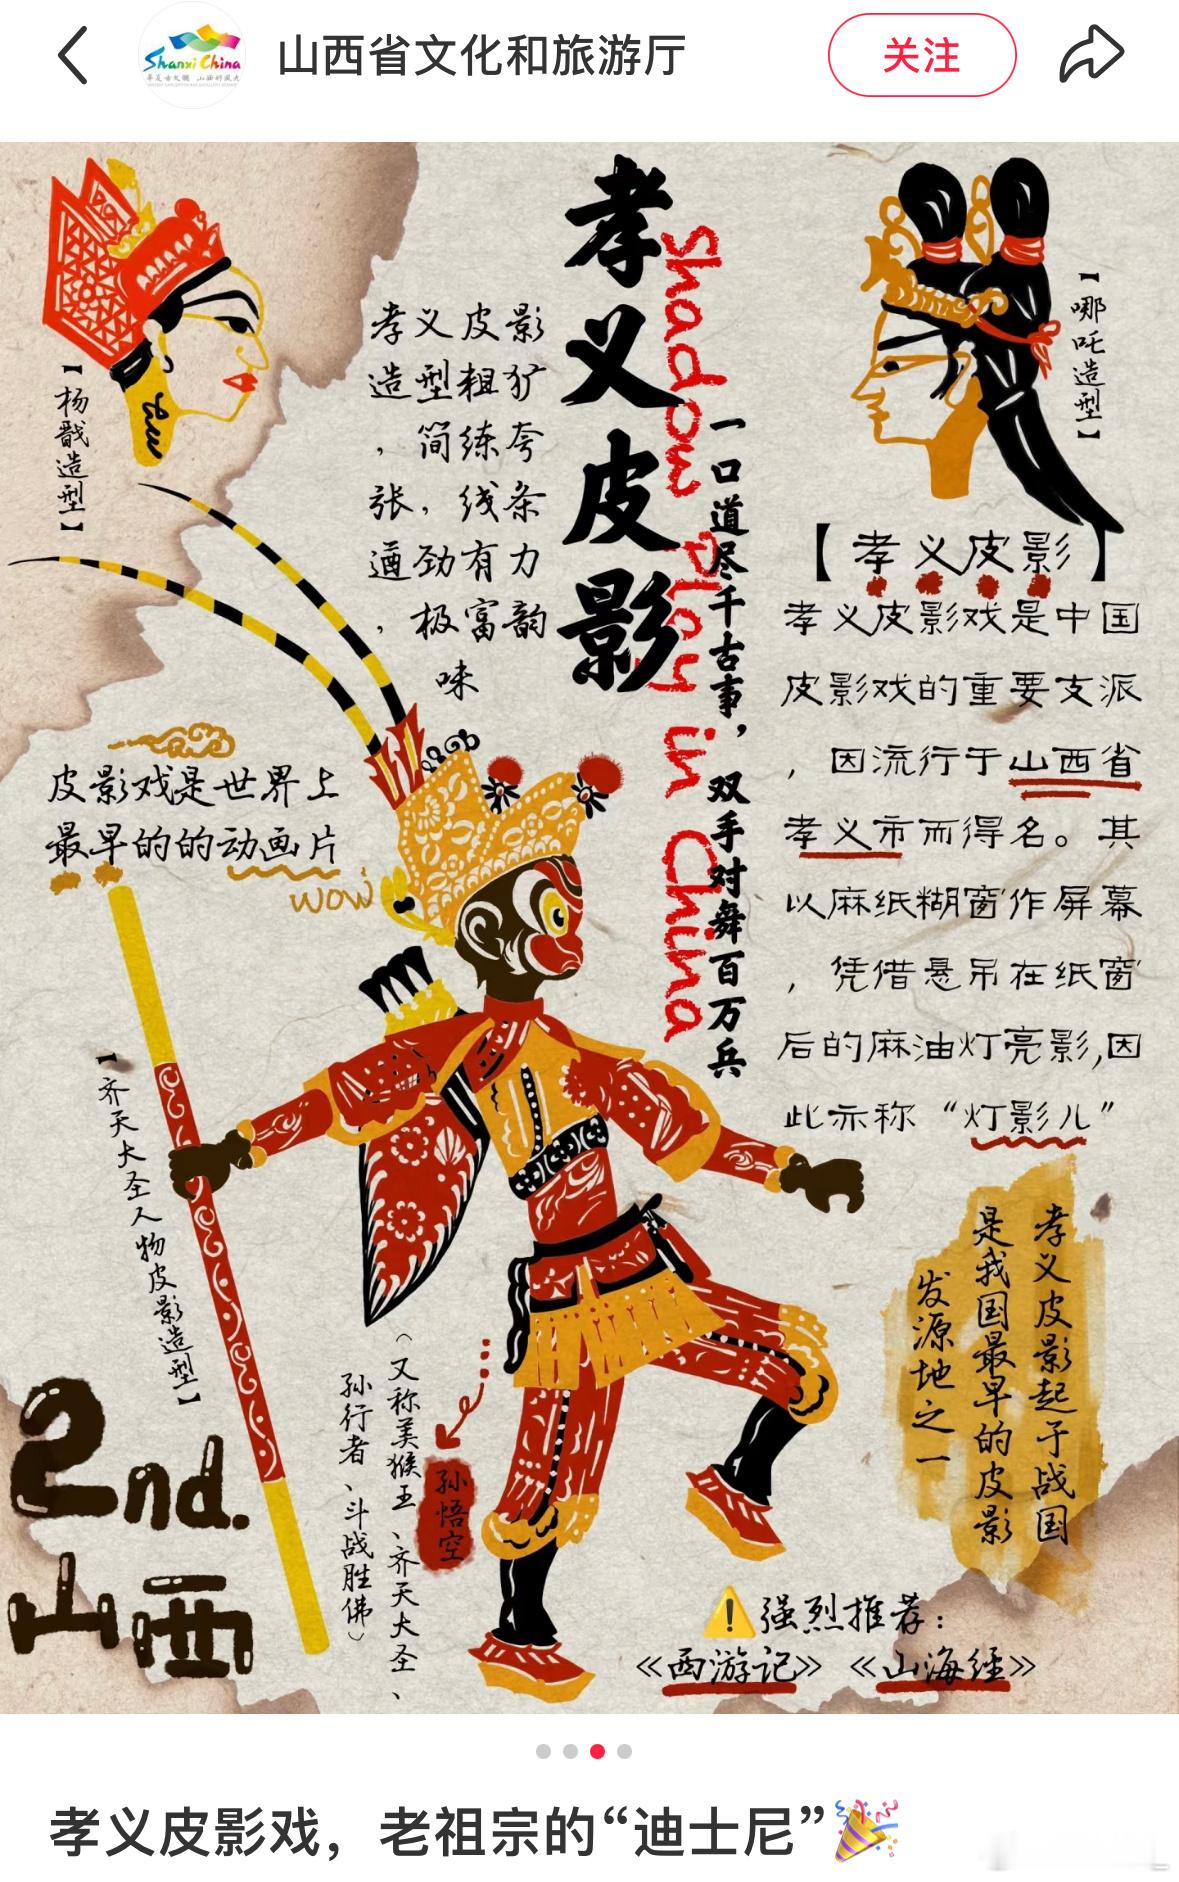 山西省文化和旅游厅
关注
Shanxi China
孝义皮影
Shadow Play in China
一口道尽千古事，双手对舞百万兵
【杨戬造型】
孝义皮影
造型粗犷
，简练夸
张，线条
遒劲有力
，极富韵
味
【哪吒造型】
【孝义皮影】
孝义皮影戏是中国
皮影戏的重要支派
，因流行于山西省
孝义市而得名。其
以麻纸糊窗作屏幕
，凭借悬吊在纸窗
后的麻油灯亮影,因
此亦称“灯影儿”
皮影戏是世界上
最早的的动画片
wow
【齐天大圣人物皮影造型】
孝义皮影起于战国
是我国最早的皮影
发源地之一
孙悟空
（又称美猴王、齐天大圣、
孙行者、斗战胜佛）
2nd.
山西
⚠️强烈推荐：
《西游记》《山海经》
孝义皮影戏，老祖宗的“迪士尼”🎉